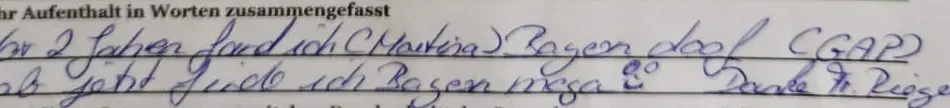 hr Aufenthalt in Worten zusammengefasst
or 2 Jahren fand ich (Martina) Bayern doof (GAP)
ab jetzt finde ich Bayern mega Danke Fr. Riege